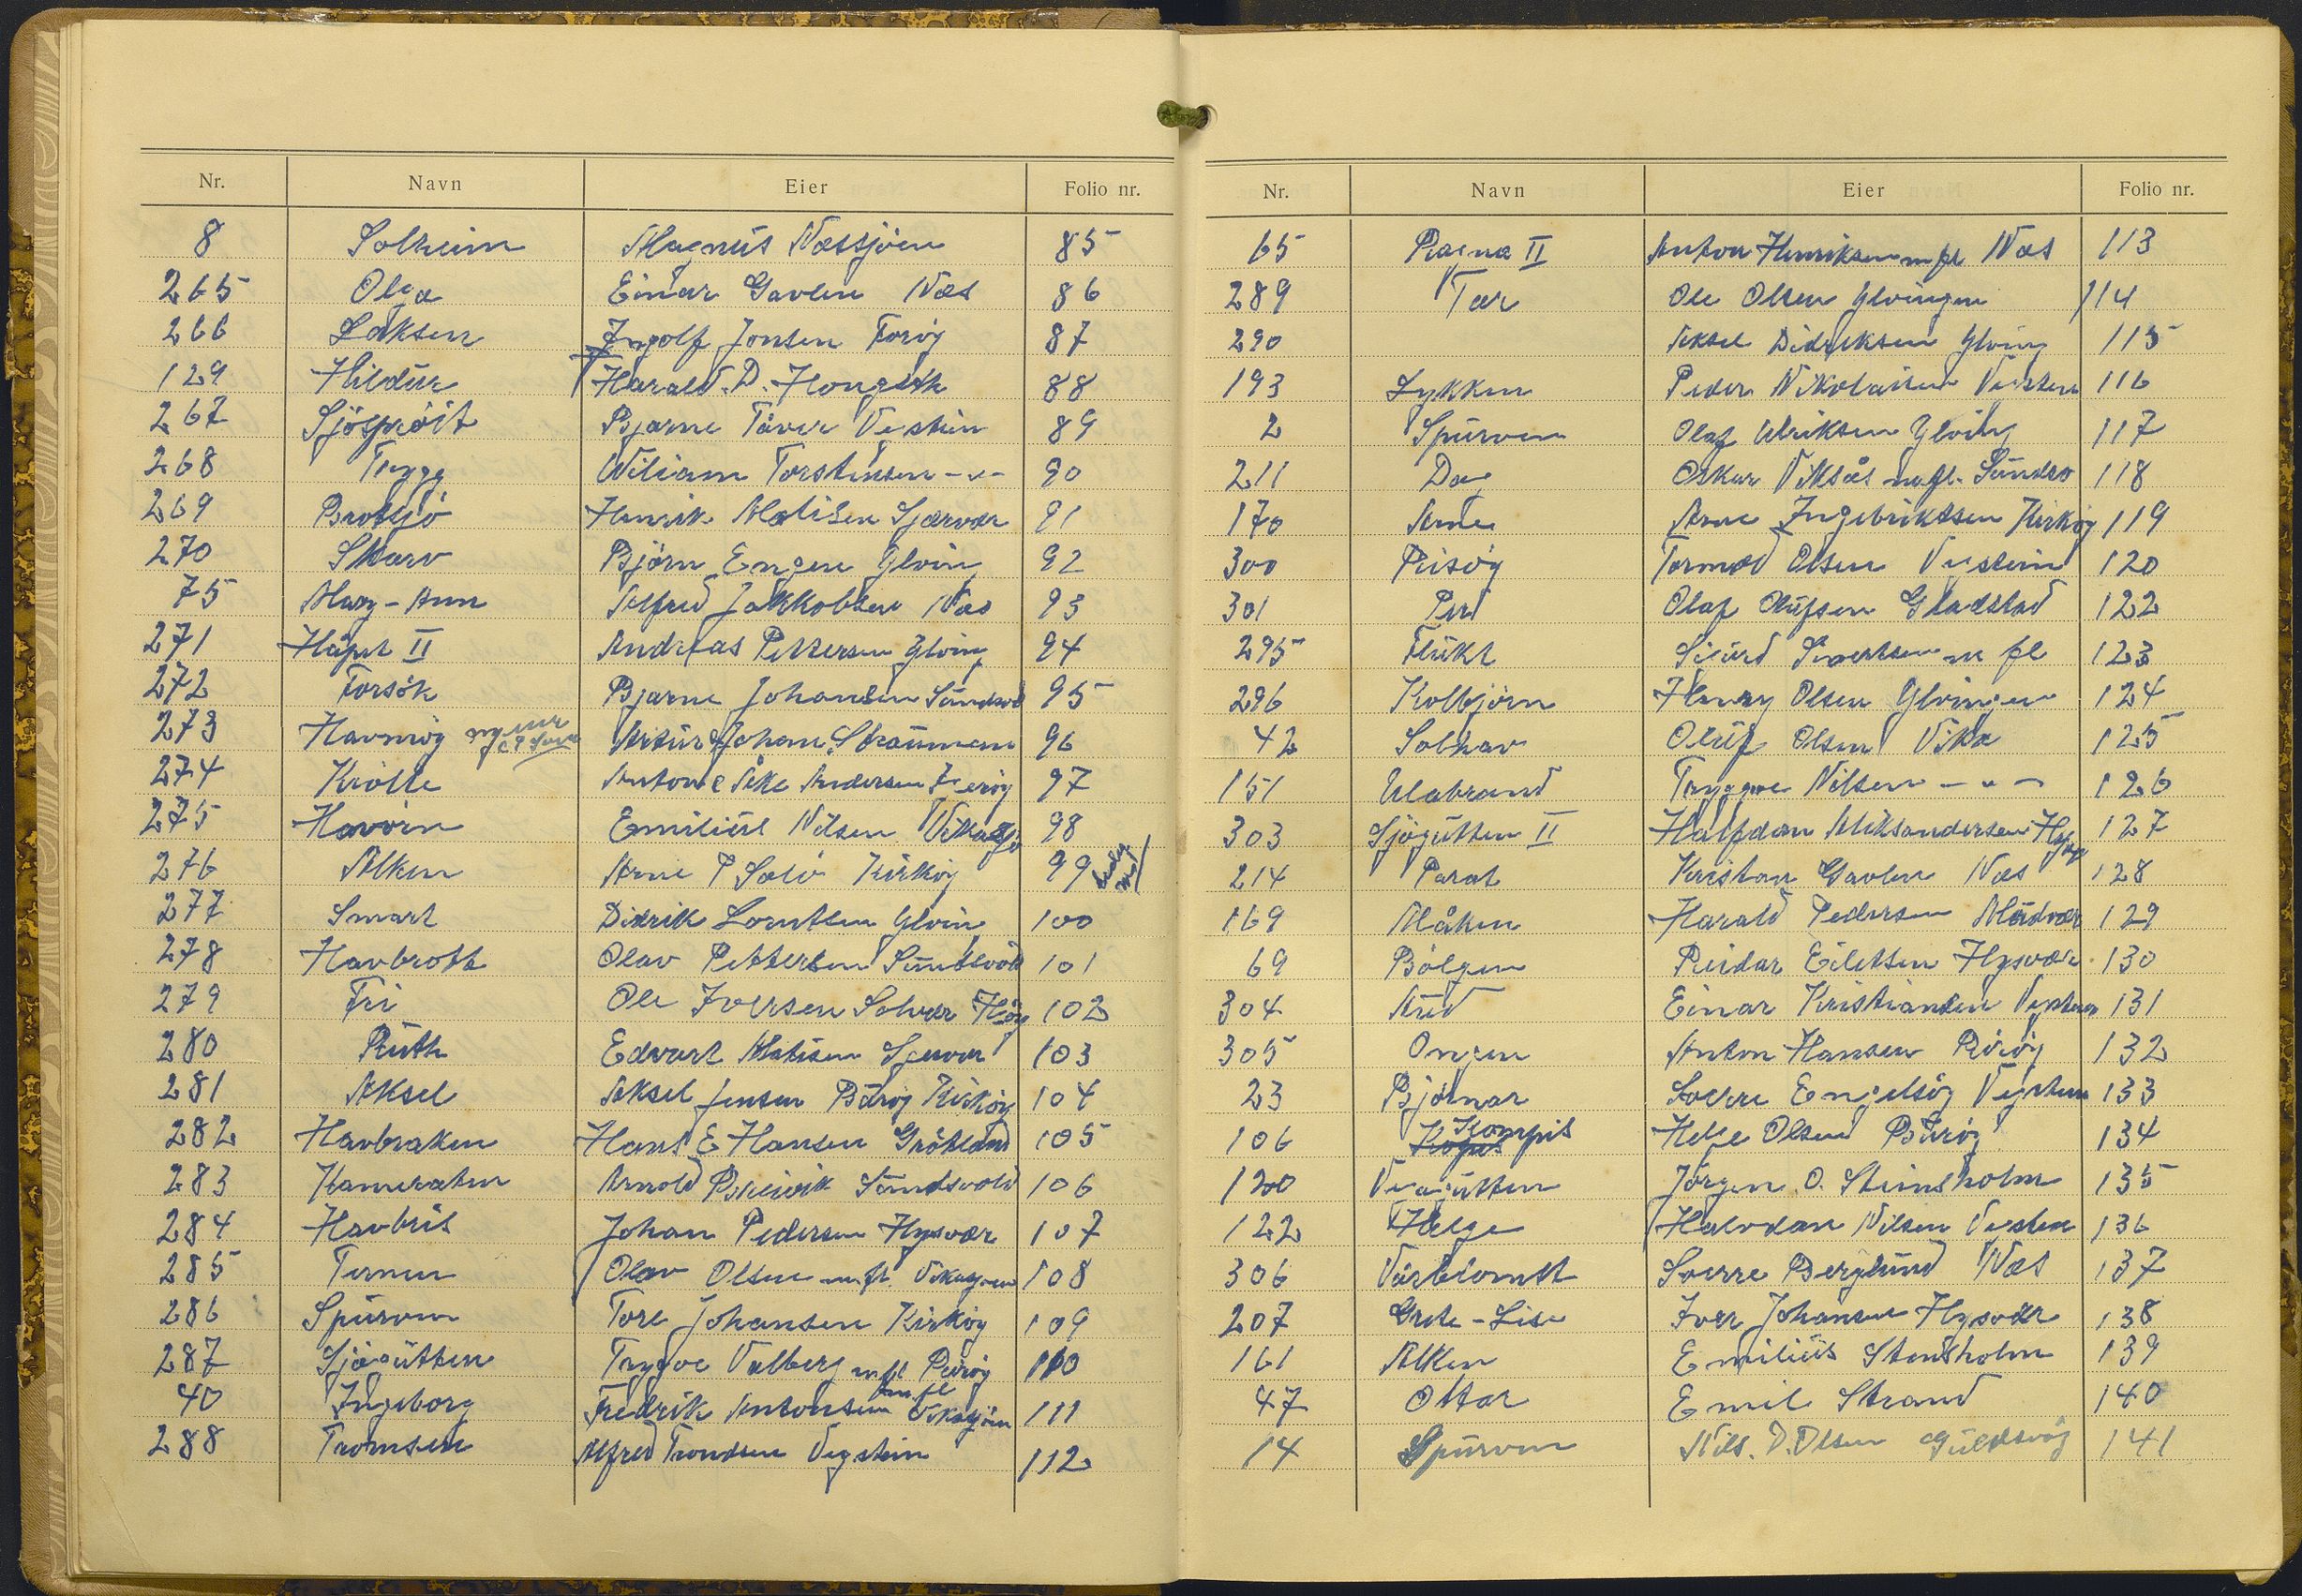 Nr. Navn Eier Folio nr.
8 Solheim Magnus Næssjöen 85
265 Olga Einar Gavlen Næs 86
266 Laksen Ingolf Jonsen Forög 87
129 Hildur Harald D. Hongset 88
267 Sjöspröit Bjarne Tåver Vegstein 89
268 Trygg Wiliam Torstensen -"- 90
269 Brotsjö Henrik Matisen Skjærvær 91
270 Skarv Björn Engen Gloin 92
75 Mary-Ann Alfred Jakkobsen Næs 93
271 Håpet II Andreas Pettersen Gloing 94
272 Forsök Bjarne Johansen Sundsvold 95
273 Havmög Artur Johan Straumen 96
274 Krölle Anton Åke Andersen 97
275 Havörn Emilius Nilsen 98
276 Alken Arne P Salö Kirkög 99
277 Smart Didrik Lorntsen Gloin 100
278 Havbrott Olav Pettersen Sundsvold 101
279 Fri Ole Iversen Solvær 102
280 Ruth Edvart Matisen 103
281 Aksel Aksel Jensen Bårög Kirkög 104
282 Havbraken Hans E Hansen Gröttland 105
283 Kameraten Arnold Sundsvold 106
284 Havbris Johan Pedersen Hysvær 107
285 Ternen Olav Olsen m.fl. Vikasjöen 108
286 Spurven Tore Johansen Kirkög 109
287 Sjögutten Trygve Valberg m.fl. Rörög 110
40 Ingeborg Fredrik Antonsen m.fl Vikasjöen 111
288 Tromsen Alfred Trondsen Vegstein 112
Nr. Navn Eier Folio nr.
65 Ragna II Anton Henriksen m.fl Næs 113
289 Tor Ole Olsen Gloingen 114
290 Aksel Didriksen Gloing 115
193 Lykken Peder Nikolaisen Vegstein 116
2 Spurven Olaf Ulriksen Gloing 117
211 Dag Oskar Viksås m.fl. Sundsvo 118
170 Arne Ingebriktsen Kirkög 119
300 Risög Tormod Olsen Vegstein 120
301 Per Olaf Olufsen Gladstad 122
295 Flukt Sigurd Sivertsen m fl 123
296 Kolbjörn Harry Olsen Gloingen 124
42 Solhav Oluf Olsen Vika 125
151 Ulabrand Trygve Nilsen -"- 126
303 Sjögutten II Halfdan Aleksandersen 127
214 Parat Kristian Gavlen Næs 128
169 Måken Harald Pedersen Mudvær 129
69 Bölgen Reidar Eilertsen Hysvær 130
304 Aud Einar Kristiansen Vegstein 131
305 Ongen Anton Hansen Rörög 132
23 Björnar Sverre Engelsög Vegstein 133
106 Kompis Helge Olsen Bårög 134
120 Vegagutten Jörgen O. Steinsholm 135
122 Helge Halvdan Nilsen Vegstein 136
306 Vårblomst Sverre Berglund Næs 137
207 Grete-Lise Iver Johansen Hysvær 138
161 Alken Emilius Stensholm 139
47 Ottar Emil Strand 140
14 Spurven Nils. D. Olsen Guldsvåg 141